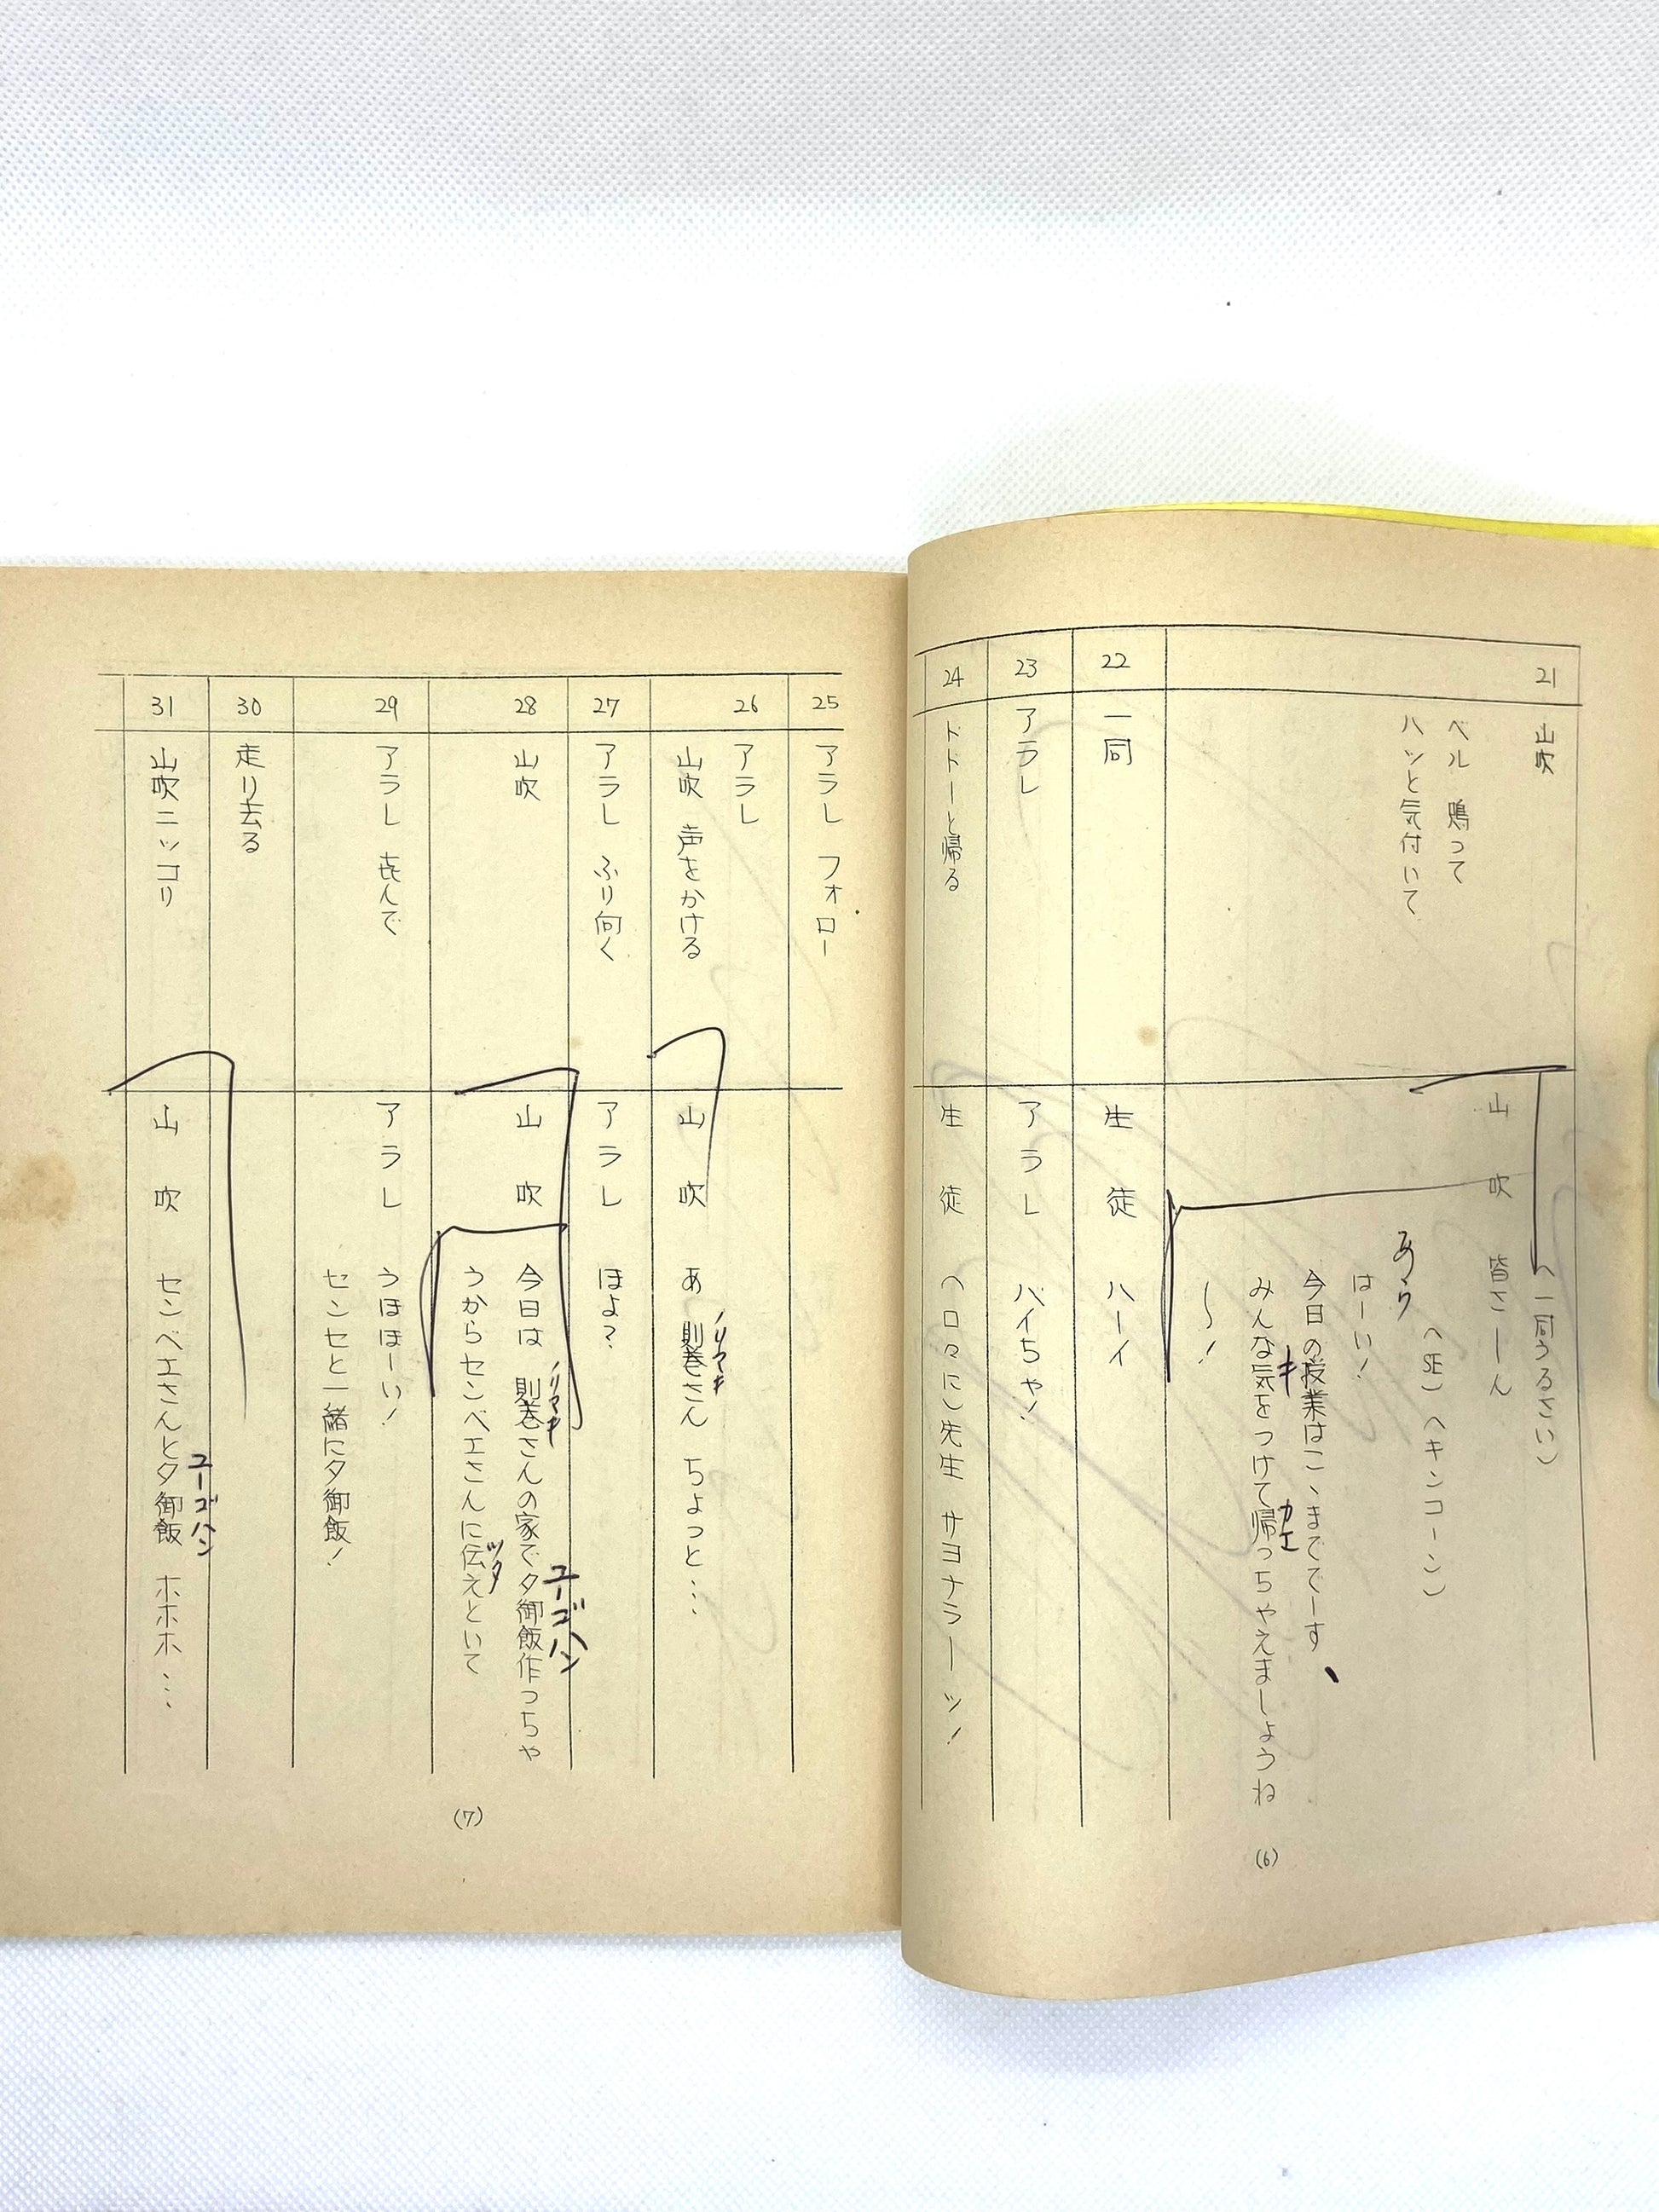 21
山吹
ベル 鳴って
ハッと気付いて
(一同うるさい)
山吹 皆さーん
(SE)(キンコーン)
あっ
はーい!
今日の授業はこゝまででーす
みんな気をつけて帰っちゃえましょうね
キ
カエ
~!
22
一同
生徒 ハーイ
23
アラレ
アラレ バイちゃ!
24
ドドーと帰る
生徒 (口々に)先生 サヨナラーッ!
(6)
25
アラレ フォロー
26
アラレ
山吹 声をかける
山吹 あ 則巻さん ちょっと…
ノリマキ
27
アラレ ふり向く
アラレ ほよ?
28
山吹
山吹 今日は 則巻さんの家で夕御飯作っちゃ
ノリマキ
ユーゴハン
うからセンベエさんに伝えといて
ツタ
29
アラレ 喜んで
アラレ うほほーい!
センセと一緒に夕御飯!
30
走り去る
31
山吹ニッコリ
山吹 センベエさんと夕御飯 ホホホ…
ユーゴハン
(7)